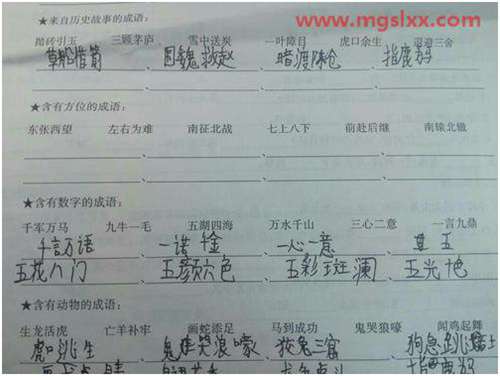 www.mgslxx.com
★来自历史故事的成语:
抛砖引玉 三顾茅庐 雪中送炭 一叶障目 虎口余生 退避三舍
草船借箭 围魏救赵 暗渡陈仓 指鹿
★含有方位的成语:
东张西望 左右为难 南征北战 七上八下 前赴后继 南辕北辙
★含有数字的成语:
千军万马 九牛一毛 五湖四海 万水千山 三心二意 一言九鼎
千言万语 一诺千金 一心一意 五
五花八门 五颜六色 五彩斑澜 五光
★含有动物的成语:
生龙活虎 亡羊补牢 画蛇添足 马到成功 鬼哭狼嚎 闻鸡起舞
虎口逃生 鬼哭浪嚎 狡兔三窟 狗急跳